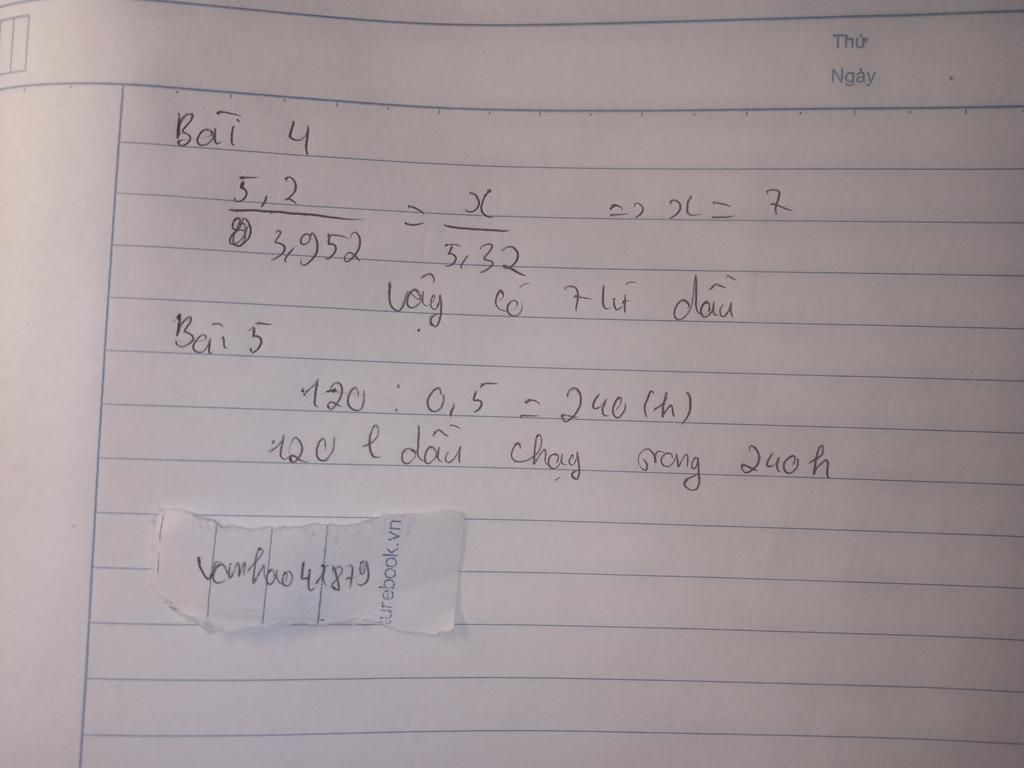 Thứ
Ngày
Bài 4
5,2 / 3,952 = x / 5,32 => x = 7
Vậy có 7 lít dầu
Bài 5
120 : 0,5 = 240 (h)
120 l dầu chạy trong 240h
vanhao41879
urebook.vn